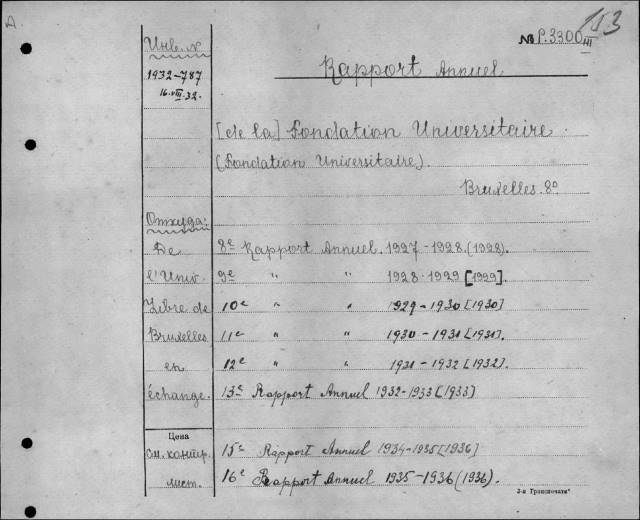 А.
№ P.3300/III
113
Инв. №
1932-787
16.VIII.32.
Rapport Annuel
[de la] Fondation Universitaire.
(Fondation Universitaire).
Bruxelles. 8°
Откуда:
De
l'Univ.
Libre de
Bruxelles
en
échange.
8e Rapport Annuel. 1927-1928. (1928).
9e " " 1928-1929 [1929].
10e " " 1929-1930 [1930]
11e " " 1930-1931 [1931].
12e " " 1931-1932 [1932].
13e Rapport Annuel 1932-1933 [1933]
Цена
см. контр.
лист.
15e Rapport Annuel 1934-1935 [1936]
16e Rapport Annuel 1935-1936 (1936).
3-я Гранпечати"